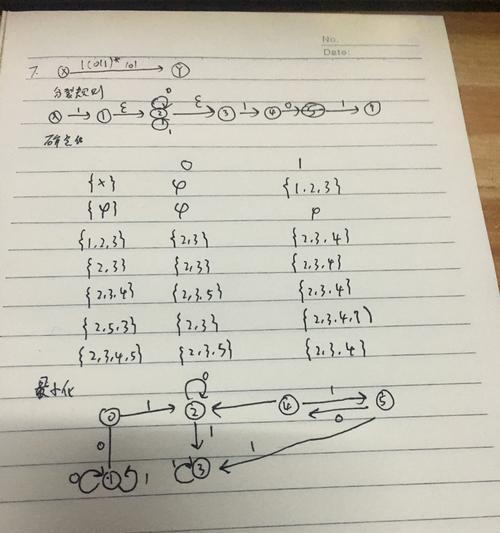 No.
Date:
7. X 1(0|1)* 101 Y
分裂规则
X 1 1 ε 2 0 1 ε 3 1 4 0 5 1 Y
确定化
0 1
{x} φ {1,2,3}
{φ} φ φ
{1,2,3} {2,3} {2,3,4}
{2,3} {2,3} {2,3,4}
{2,3,4} {2,3,5} {2,3,4}
{2,5,3} {2,3} {2,3,4,Y}
{2,3,4,5} {2,3,5} {2,3,4}
最小化
0 1 2 0 4 1 5 0
0 1 1
0 1 1 1 3